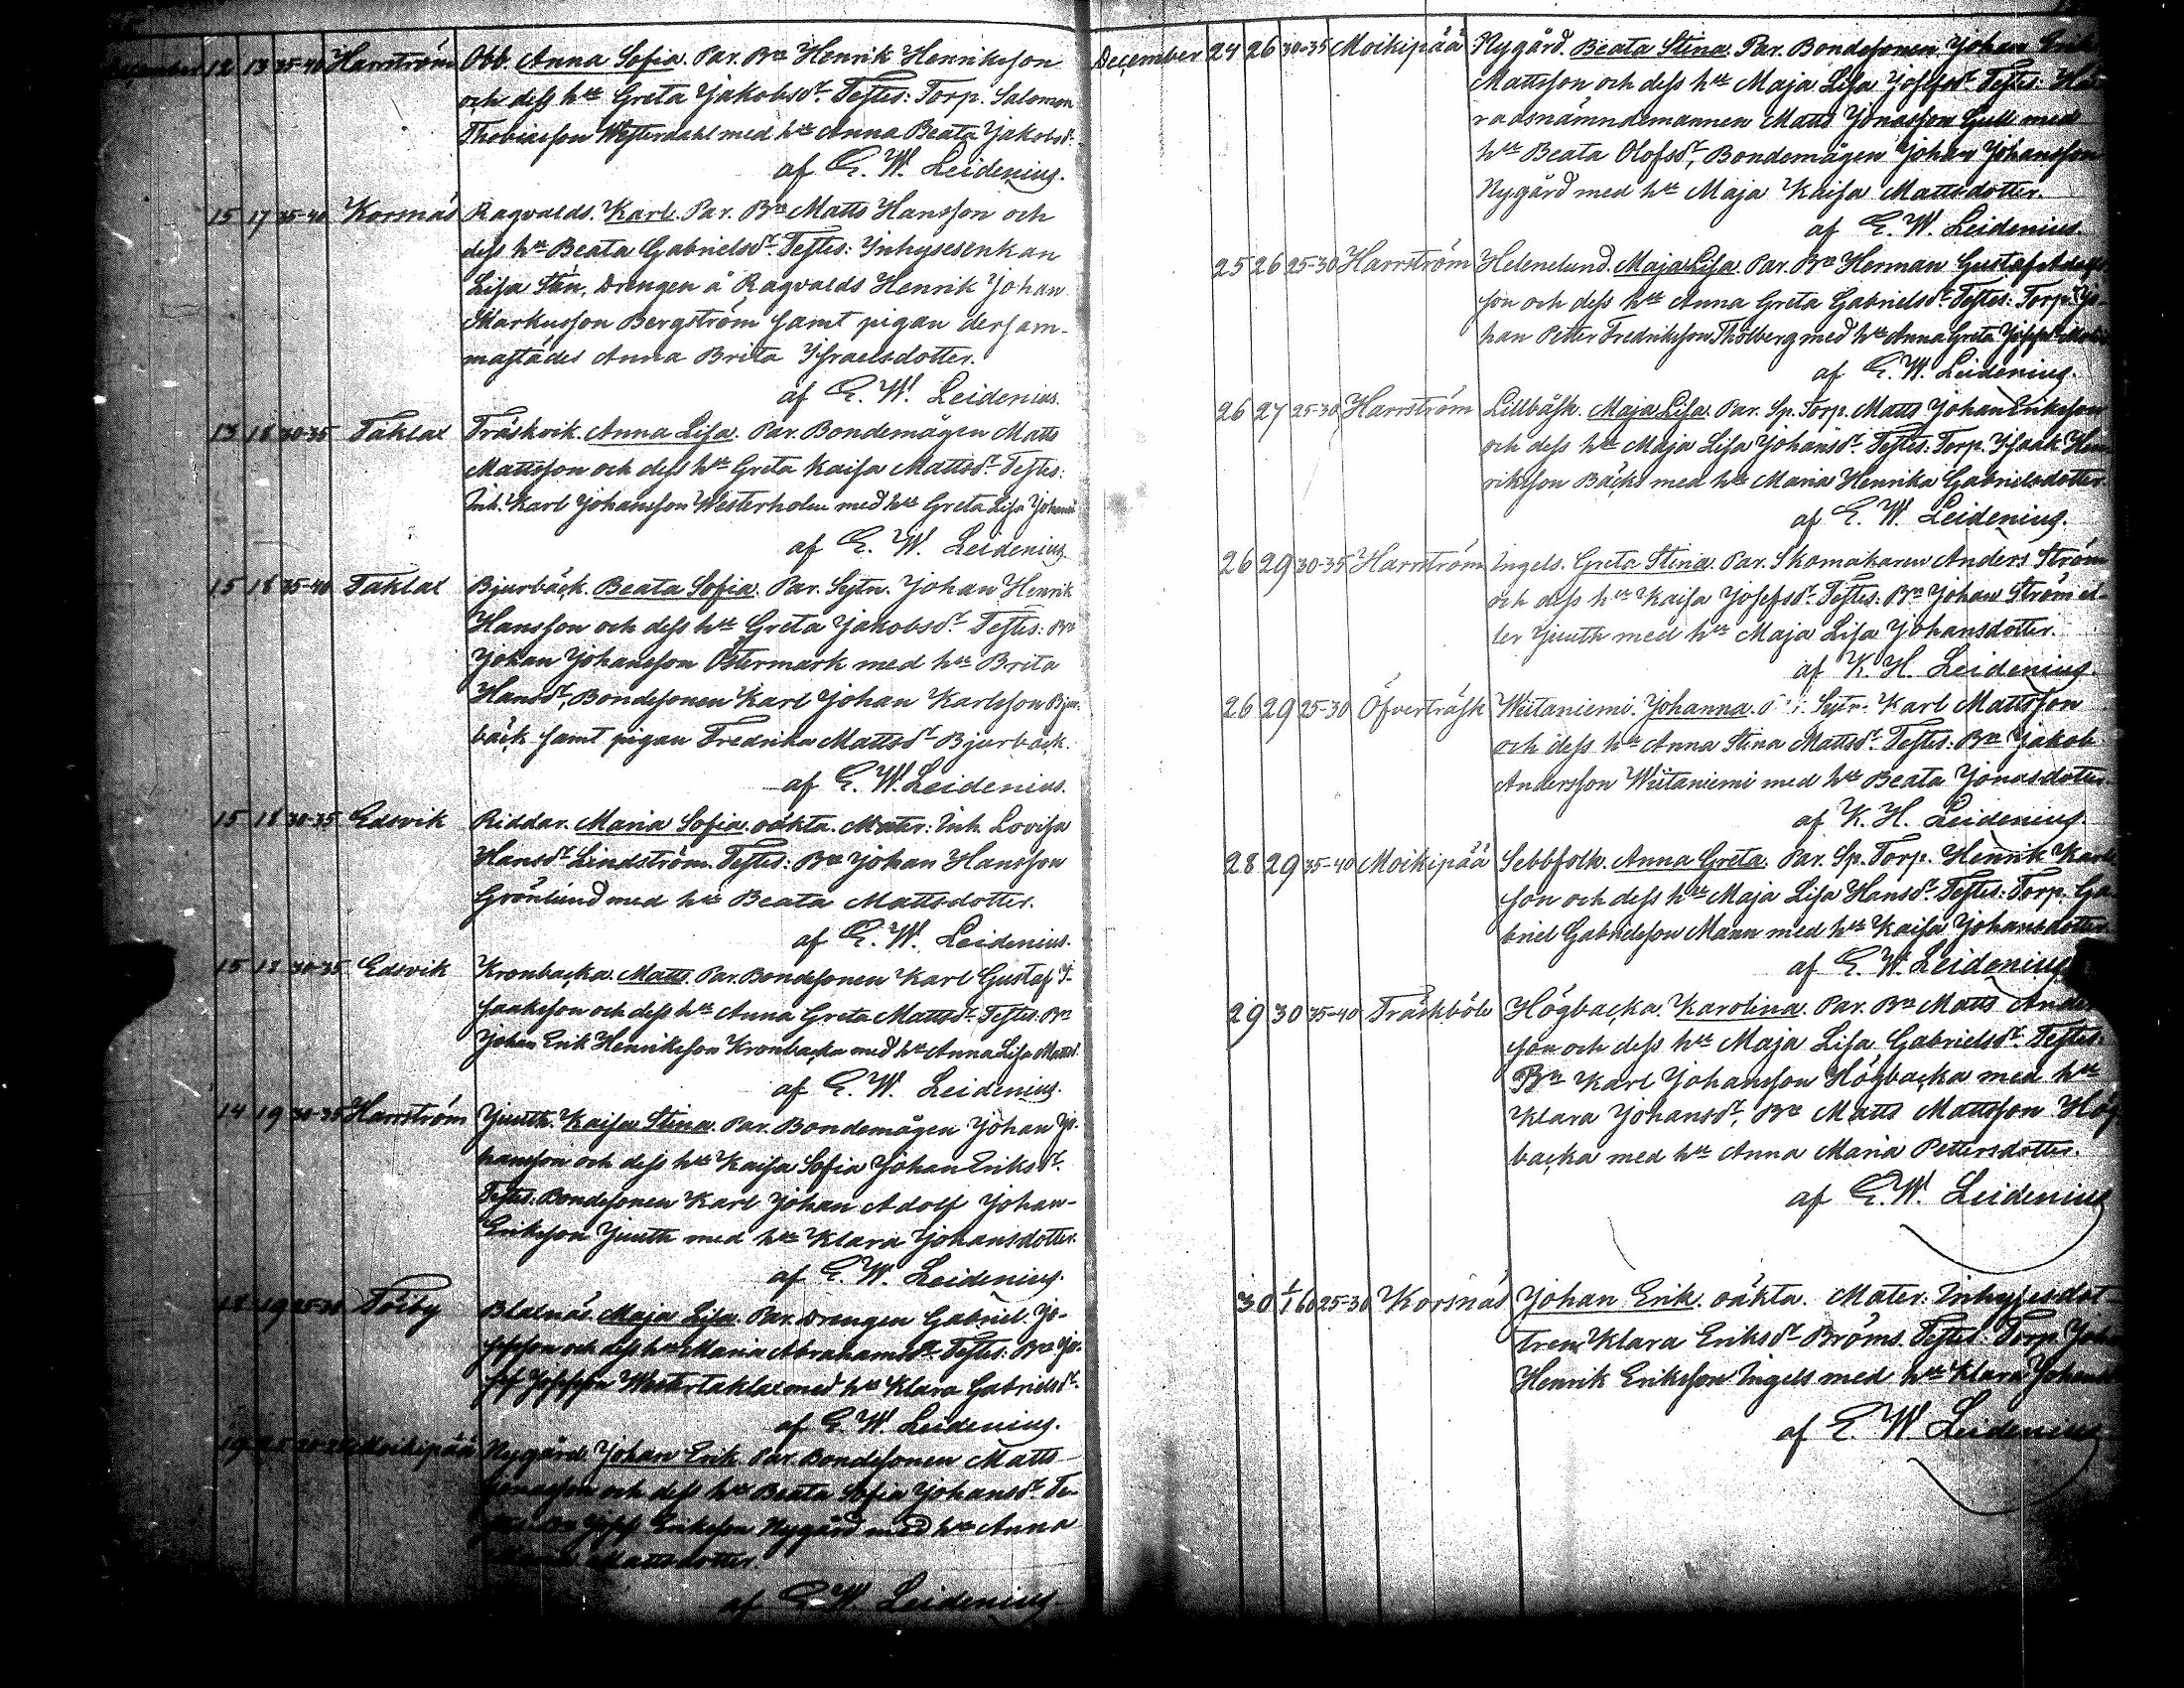 12 13 35-40 Harrström Obb. Anna Sofia. Par. Bn Henrik Henriksson
och dess hu Greta Jakobsdr. Testes: Torp. Salomon
Thobiasson Westerdahl med hu Anna Beata Jakobsdr.
af E. W. Leidenius.
15 17 35-40 Korsnäs Ragvalds. Karl. Par. Bn Matts Hansson och
dess hu Beata Gabrielsdr. Testes: Inhysesenkan
Lisa Stån, Drengen å Ragvalds Henrik Johan
Markusson Bergström samt pigan dersam-
mastädes Anna Brita Israelsdotter.
af E. W. Leidenius.
13 18 30-35 Taklax Träskvik. Anna Lisa. Par. Bondemågen Matts
Mattsson och dess hu Greta Kaisa Mattsdr. Testes:
Inh. Karl Johansson Westerholm med hu Greta Lisa
af E. W. Leidenius
15 18 35-40 Taklax Bjurbäck. Beata Sofia. Par. Sytn. Johan Henrik
Hansson och dess hu Greta Jakobsdr. Testes: Bn
Johan Johansson Östermark med hu Brita
Hansdr, Bondesonen Karl Johan Karlsson Bjur-
bäck samt pigan Fredrika Mattsdr Bjurback.
af E. W. Leidenius.
15 18 30-35 Edsvik Riddar. Maria Sofia. oäkta. Mater: Inh. Lovisa
Hansdr Lindström. Testes: Bn Johan Hansson
Grönlund med hu Beata Mattsdotter.
af E. W. Leidenius.
15 18 30-35 Edsvik Kronbacka. Matts. Par. Bondesonen Karl Gustaf I-
saaksson och dess hu Anna Greta Mattsdr. Testes: Bn
Johan Erik Henriksson Kronbacka med hu Anna Lisa Mattsd.
af E. W. Leidenius.
14 19 30-35 Harrström Juuth. Kaisa Stina. Par. Bondemågen Johan Jo-
hansson och dess hu Kaisa Sofia Johan Eriksdr.
Testes: Bondesonen Karl Johan Adolf Johan-
Eriksson Juuth med hu Klara Johansdotter.
af E. W. Leidenius.
18 19 25-30 Töjby Blaxnäs. Maja Lisa. Par. Drengen Gabriel Jo-
sefsson och dess hu Maria Abrahamsdr. Testes: Bn Jo-
sef Josefsson Westertaklax med hu Klara Gabrielsdr.
af E. W. Leidenius.
19 Moikipää Nygård. Johan Erik. Par. Bondesonen Matts
Jonasson och dess hu Beata Sofia Johansdr. Tes-
Bn Josef Eriksson Nygård med hu Anna
Mattsdotter.
af E. W. Leidenius
December 24 26 30-35 Moikipää Nygård. Beata Stina. Par. Bondesonen Johan Erik
Mattsson och dess hu Maja Lisa Josefsdr. Testes: Hä-
radsnämndemannen Matts Jonasson Gull med
hu Beata Olofsdr, Bondemågen Johan Johansson
Nygård med hu Maja Kaisa Mattsdotter.
af E. W. Leidenius.
25 26 25-30 Harrström Helenelund. Maja Lisa. Par. Bn Herman Gustaf
son och dess hu Anna Greta Gabrielsdr. Testes: Torp. Jo-
han Petter Fredriksson Thölberg med hu Anna Greta
af E. W. Leidenius.
26 27 25-30 Harrström Lillbåsk. Maja Lisa. Par. Sp. Torp. Matts Johan Eriksson
och dess hu Maja Lisa Johansdr. Testes: Torp. Isaak Hen-
riksson Bäck med hu Maria Henrika Gabrielsdotter.
af E. W. Leidenius.
26 29 30-35 Harrström Ingels. Greta Stina. Par. Skomakaren Anders Ström
och dess hu Kaisa Josefsdr. Testes: Bn Johan Ström el-
ler Juuth med hu Maja Lisa Johansdotter.
af K. H. Leidenius.
26 29 25-30 Öfverträsk Wiitaniemi. Johanna. Sytn. Karl Mattsson
och dess hu Anna Stina Mattsdr. Testes: Bn Jakob
Andersson Wiitaniemi med hu Beata Jonasdotter.
af K. H. Leidenius.
28 29 35-40 Moikipää Sebbfolk. Anna Greta. Par. Sp. Torp. Henrik Karls-
son och dess hu Maja Lisa Hansdr. Testes: Torp. Ga-
briel Gabrielsson Mann med hu Kaisa Johansdotter.
af E. W. Leidenius
29 30 35-40 Träskböle Högbacka. Karolina. Par. Bn Matts Anders-
son och dess hu Maja Lisa Gabrielsdr. Testes:
Bn Karl Johansson Högbacka med hu
Klara Johansdr, Bn Matts Mattsson Hög-
backa med hu Anna Maria Pettersdotter.
af E. W. Leidenius
30 1/1 60 25-30 Korsnäs Johan Erik. oäkta. Mater: Inhysesdot-
tren Klara Eriksdr Bröms. Testes: Torp. Johan
Henrik Eriksson Ingels med hu Klara
af E. W. Leidenius